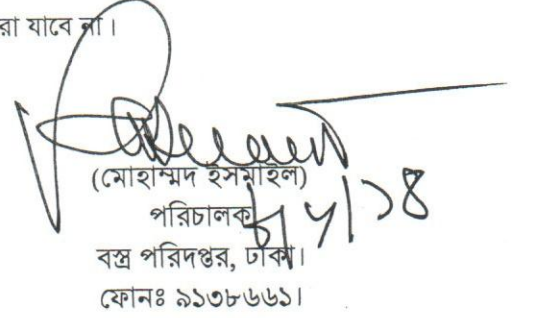 রা যাবে না।
(মোহাম্মদ ইসমাইল)
পরিচালক
বস্ত্র পরিদপ্তর, ঢাকা।
ফোনঃ ৯১৩৮৬৬১।